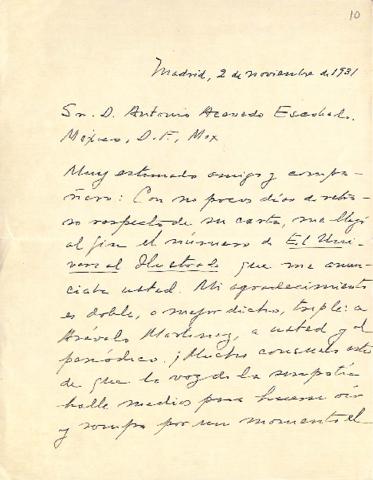 10
Madrid, 2 de noviembre de 1931
Sr. D. Antonio Acevedo Escobedo.
México, D. F., Mex
Muy estimado amigo y compa-
ñero: Con no pocos días de retra-
so respecto de su carta, me llegó
al fin el número de El Uni-
versal Ilustrado que me anun-
ciaba usted. Mi agradecimiento
es doble, o mejor dicho, triple: a
Arévalo Martínez, a usted y al
periódico. ¡Mucho consuelo es
de que la voz de la simpatía
halle medios para hacerse oír
y rompa por un momento el